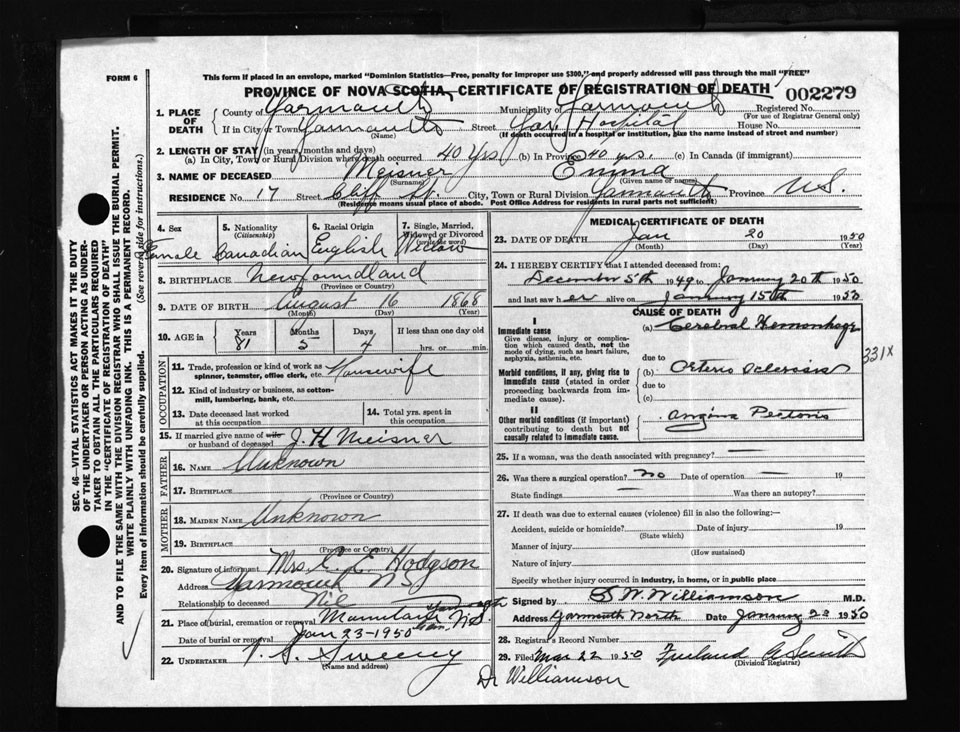 FORM 6
This form if placed in an envelope, marked "Dominion Statistics—Free, penalty for improper use $300," and properly addressed will pass through the mail "FREE"
PROVINCE OF NOVA SCOTIA, CERTIFICATE OF REGISTRATION OF DEATH 002279
1. PLACE OF DEATH County of Yarmouth Municipality of Yarmouth Registered No.
(For use of Registrar General only)
If in City or Town Yarmouth Street Yar. Hospital House No.
(Name) (If death occurred in a hospital or institution, give the name instead of street and number)
2. LENGTH OF STAY (in years, months and days)
(a) In City, Town or Rural Division where death occurred 40 Yrs (b) In Province 40 yrs. (c) In Canada (if immigrant)
3. NAME OF DECEASED Meisner Emma
(Surname) (Given name or names)
RESIDENCE No. 17 Street Cliff St. City, Town or Rural Division Yarmouth Province N.S.
(Residence means usual place of abode. Post Office Address for residents in rural parts not sufficient)
4. Sex 5. Nationality (Citizenship) 6. Racial Origin 7. Single, Married, Widowed or Divorced (write the word)
Female Canadian English Widow
8. BIRTHPLACE Newfoundland
(Province or Country)
9. DATE OF BIRTH August 16 1868
(Month) (Day) (Year)
10. AGE in Years Months Days If less than one day old
81 5 4 hrs. or min.
OCCUPATION
11. Trade, profession or kind of work as spinner, teamster, office clerk, etc. Housewife
12. Kind of industry or business, as cotton-mill, lumbering, bank, etc.
13. Date deceased last worked at this occupation
14. Total yrs. spent in this occupation
15. If married give name of wife or husband of deceased J. H Meisner
FATHER
16. NAME Unknown
17. BIRTHPLACE
(Province or Country)
MOTHER
18. MAIDEN NAME Unknown
19. BIRTHPLACE
(Province or Country)
20. Signature of informant Mrs. C. E. Hodgson
Address Yarmouth N.S.
Relationship to deceased
21. Place of burial, cremation or removal Mountain Cem. Yarmouth N.S.
Date of burial or removal Jan 23-1950
22. UNDERTAKER V. S. Sweeny
(Name and address)
MEDICAL CERTIFICATE OF DEATH
23. DATE OF DEATH Jan 20 1950
(Month) (Day) (Year)
24. I HEREBY CERTIFY that I attended deceased from:
December 5th 1949 to January 20th 1950
and last saw her alive on January 15th 1950
CAUSE OF DEATH
I
Immediate cause
Give disease, injury or complication which caused death, not the mode of dying, such as heart failure, asphyxia, asthenia, etc.
(a) Cerebral Hemorrhage
due to
331X
Morbid conditions, if any, giving rise to immediate cause (stated in order proceeding backwards from immediate cause).
(b) Arterio Sclerosis
due to
(c)
II
Other morbid conditions (if important) contributing to death but not causally related to immediate cause.
Angina Pectoris
25. If a woman, was the death associated with pregnancy? —
26. Was there a surgical operation? No Date of operation — 19
State findings — Was there an autopsy?
27. If death was due to external causes (violence) fill in also the following:—
Accident, suicide or homicide? Date of injury 19
(State which)
Manner of injury
(How sustained)
Nature of injury
Specify whether injury occurred in industry, in home, or in public place
Signed by W. Williamson M.D.
Address Yarmouth North Date January 22 1950
28. Registrar's Record Number
29. Filed Mar 22 1950 Smith
(Division Registrar)
Dr Williamson
SEC. 46—VITAL STATISTICS ACT MAKES IT THE DUTY
OF THE UNDERTAKER OR PERSON ACTING AS UNDERTAKER TO OBTAIN ALL THE PARTICULARS REQUIRED
IN THE "CERTIFICATE OF REGISTRATION OF DEATH"
AND TO FILE THE SAME WITH THE DIVISION REGISTRAR WHO SHALL ISSUE THE BURIAL PERMIT.
WRITE PLAINLY WITH UNFADING INK. THIS IS A PERMANENT RECORD.
Every item of information should be carefully supplied. (See reverse side for instructions.)